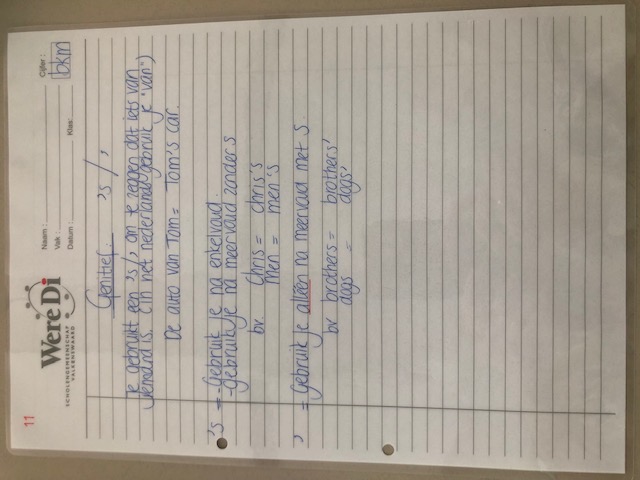 11
Were Di
SCHOLENGEMEENSCHAP
VALKENSWAARD
Naam :
Vak :
Datum :
Klas:
Cijfer :
bkm
Genitief: 's / '
Je gebruikt een 's/', om te zeggen dat iets van
iemand is. (in het nederlands gebruik je "van")
De auto van Tom = Tom's car.
's = - Gebruik je na enkelvoud.
- gebruik je na meervoud zonder s
bv Chris = chris's
men = men's
' = Gebruik je alléén na meervoud met s.
bv brothers = brothers'
dogs = dogs'